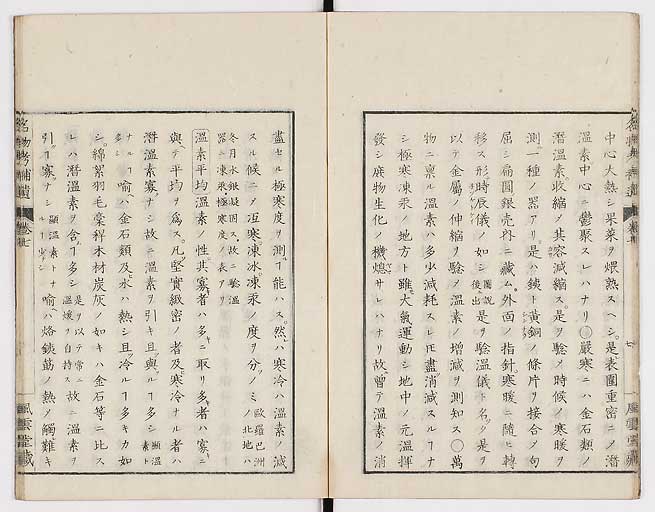 中心大熱シ果菜ヲ煨熟スヘシ。是表圍重密ニノ潜
溫素中心ニ鬱聚スレハナリ○嚴寒ニハ金石類ノ
潜溫素。收縮ノ其容減縮ス。是ヲ驗ノ時候ノ寒暖ヲ
測ル一種ノ器アリ。是ハ鋏ト黃銅ノ條片ヲ接合ノ句
屈シ扁圓銀壳内ニ藏ム。外面ノ指針寒暖ニ隨ヒ轉
移ス形時辰儀ノ如シ圖說後出是ヲ驗溫儀ト名ク是ヲ
以テ金屬ノ伸縮ヲ驗ノ溫素ノ增減ヲ測知ス○萬
物ニ稟ル溫素ハ多少減耗スレ𪜈盡消滅スルヿナ
シ極寒凍汞ノ地方ト雖。大氣運動シ地中ノ元溫揮
發シ庶物生化ノ機熄サレハナリ故曽テ溫素ノ消
盡セル極寒度ヲ測ルヿ能ハス。然ハ寒冷ハ溫素ノ減
スル候ニノ冱寒凍冰。凍汞ノ度ヲ分ノミ歐羅巴洲ノ北地ハ
冬月水銀凝固ス。故ニ驗溫器ニ凍汞。極寒度ノ表アリ
溫素平均溫素ノ性其寡者ハ多ニ取リ多者ハ寡ニ
與ヘテ平均ヲ爲ス。凡堅實緻密ノ者及ヒ寒冷ナル者ハ
潜溫素寡ナシ故ニ溫素ヲ引キ且與ルヿ多シ顯溫素ト
ナルヿ多シ喻ヘハ金石類及ヒ水ハ熱シ且冷ルヿ多キカ如
シ。綿絮羽毛稾稈木材炭灰ノ如キハ金石等ニ比ス
レハ潜溫素ヲ含ムヿ多シ是ヲ以テ常ニ溫煖ヲ自持ス故ニ溫素ヲ
引ヿ寡ナシ顯溫素トナルヿ少シ喻ヘハ烙鋏筯ノ熱ノ觸レ難キ
名物考補遺
卷七
風雲堂藏
七